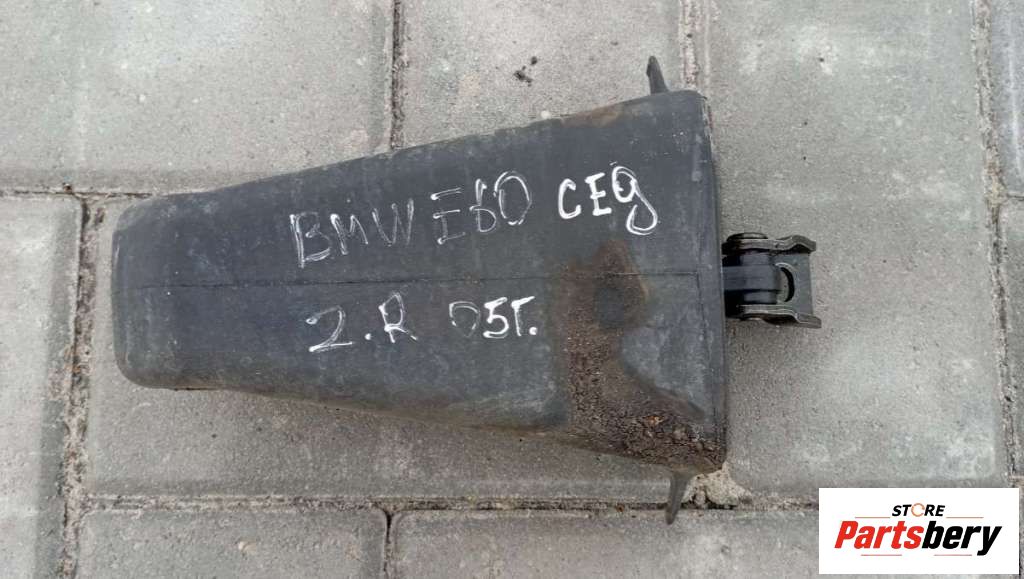 BMW E60 СЕД
2.R 05г.
STORE
Partsbery